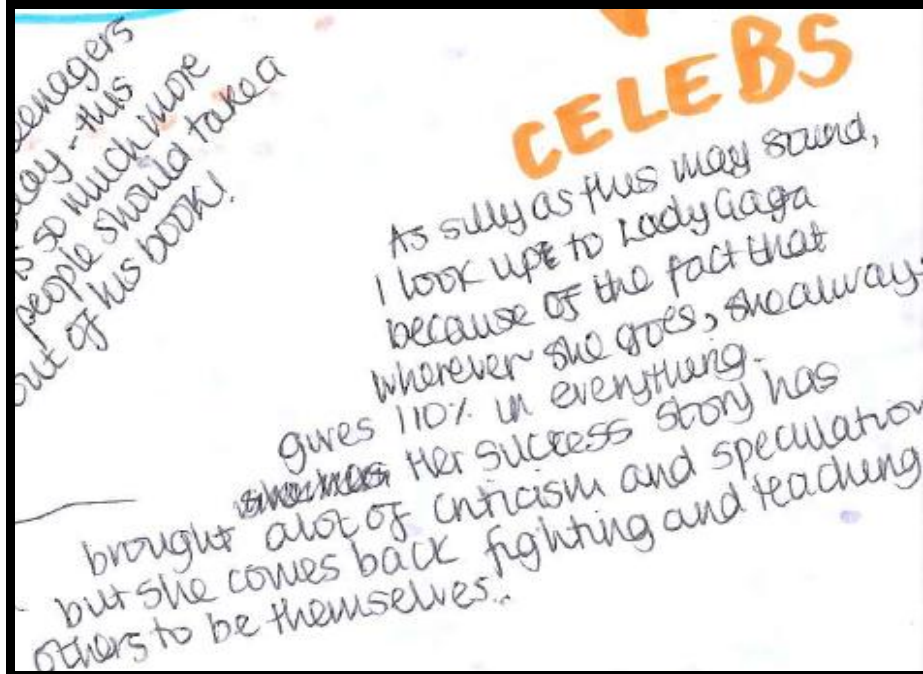 teenagers
- this
is so much more
people should take a
out of his book!
CELEBS
As silly as this may sound,
I look up to Lady Gaga
because of the fact that
wherever she goes, she always
gives 110% in everything.
Her success story has
brought alot of criticism and speculation
but she comes back fighting and teaching
others to be themselves..